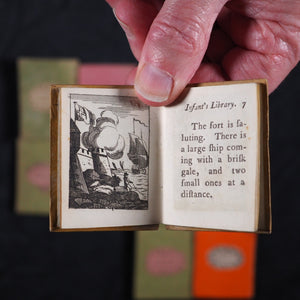 Infant's Library. 7
The fort is ſa-
luting. There is
a large ſhip com-
ing with a briſk
gale, and two
ſmall ones at a
diſtance.